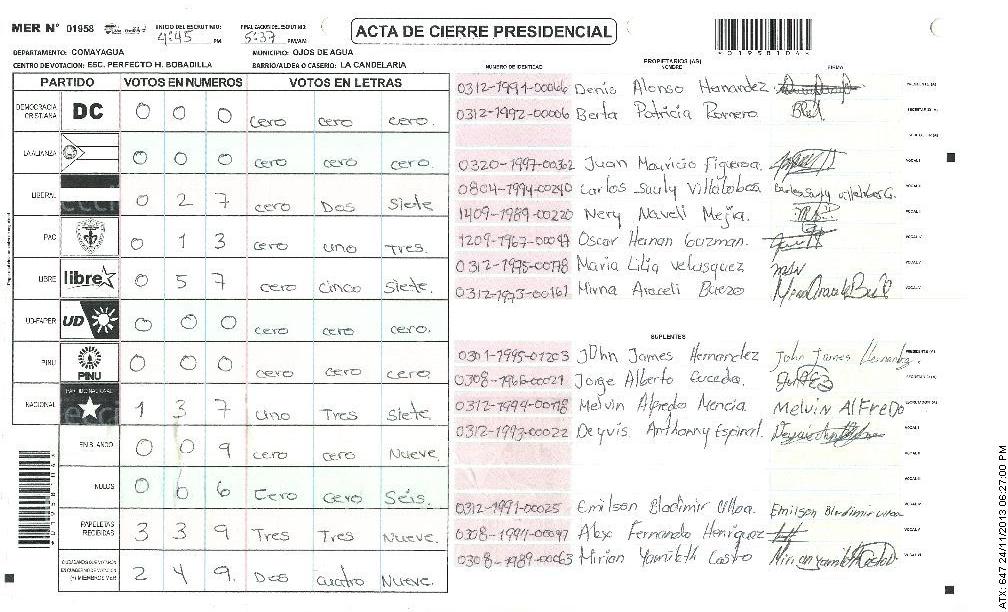 MER N° 01958 INICIO DEL ESCRUTINIO: 4:45 PM FINALIZACION DEL ESCRUTINIO: 5:37 PM/AM
ACTA DE CIERRE PRESIDENCIAL
DEPARTAMENTO: COMAYAGUA MUNICIPIO: OJOS DE AGUA
CENTRO DE VOTACION: ESC. PERFECTO H. BOBADILLA BARRIO/ALDEA O CASERIO: LA CANDELARIA
PARTIDO VOTOS EN NUMEROS VOTOS EN LETRAS
DEMOCRACIA CRISTIANA DC 0 0 0 cero cero cero.
LA ALIANZA 0 0 0 cero cero cero.
LIBERAL 0 2 7 cero Dos siete
PAC 0 1 3 cero uno Tres.
LIBRE libre 0 5 7 cero cinco Siete.
UD-FAPER UD 0 0 0 cero cero cero.
PINU PINU 0 0 0 cero cero cero
NACIONAL 1 3 7 uno Tres siete
EN BLANCO 0 0 9 cero cero Nueve
NULOS 0 0 6 Cero Cero Seis.
PAPELETAS RECIBIDAS 3 3 9 Tres Tres Nueve.
2 4 9. Dos cuatro Nueve.
PROPIETARIOS (AS)
NUMERO DE IDENTIDAD NOMBRE FIRMA
0312-1994-00066 Denis Alonso Hernandez
0312-1992-00006 Berta Patricia Romero
0320-1997-00362 Juan Mauricio Figueroa.
0804-1994-00240 Carlos Sauly Villalobos
1409-1989-00220 Nery Naveli Mejia.
1209-1967-00097 Oscar Hernan Guzman.
0312-1975-00178 Maria Lilia Velasquez
0312-1973-00161 Mirna Araceli Buezo
SUPLENTES
0301-1995-01203 John James Hernandez John James Hernandez
0308-1966-00021 Jorge Alberto
0312-1994-00178 Melvin Alfredo Mencia. Melvin AlFreDo
0312-1993-00022 Deyvis Anthonny Espinal.
0312-1991-00025 Emilson Bladimir Ulloa. Emilson Bladimir Ulloa
0308-1991-00097 Alex Fernando Henriquez
0308-1989-00063 Mirian Yamileth Castro
01958104
ATX: 647 24/11/2013 06:27:00 PM